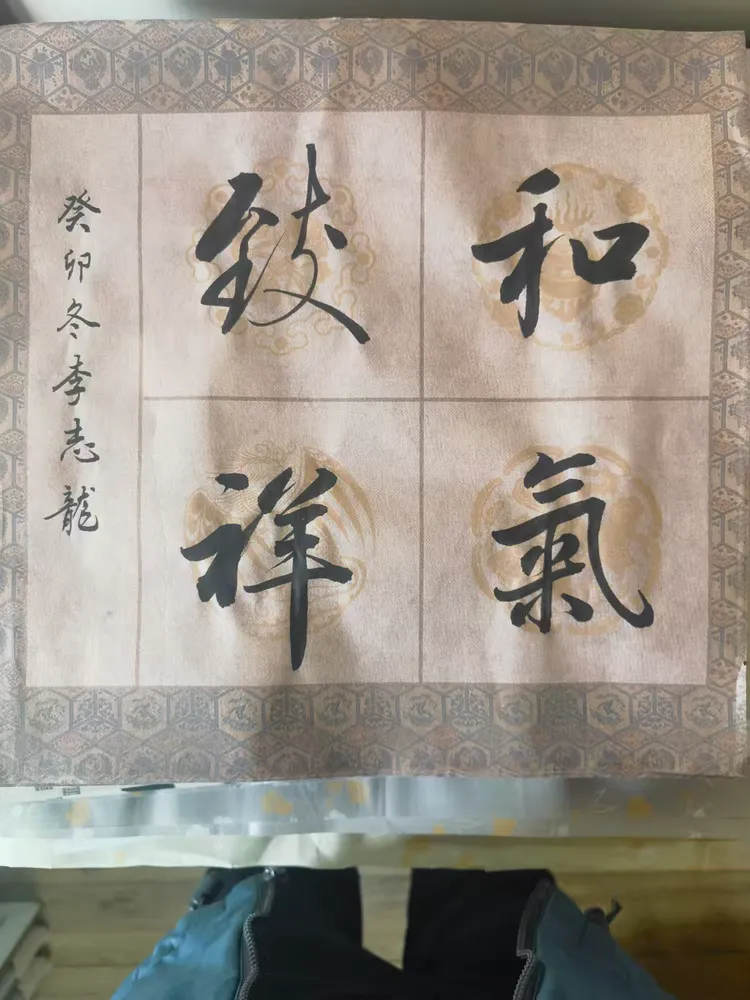 和氣
致祥
癸卯冬李志龍